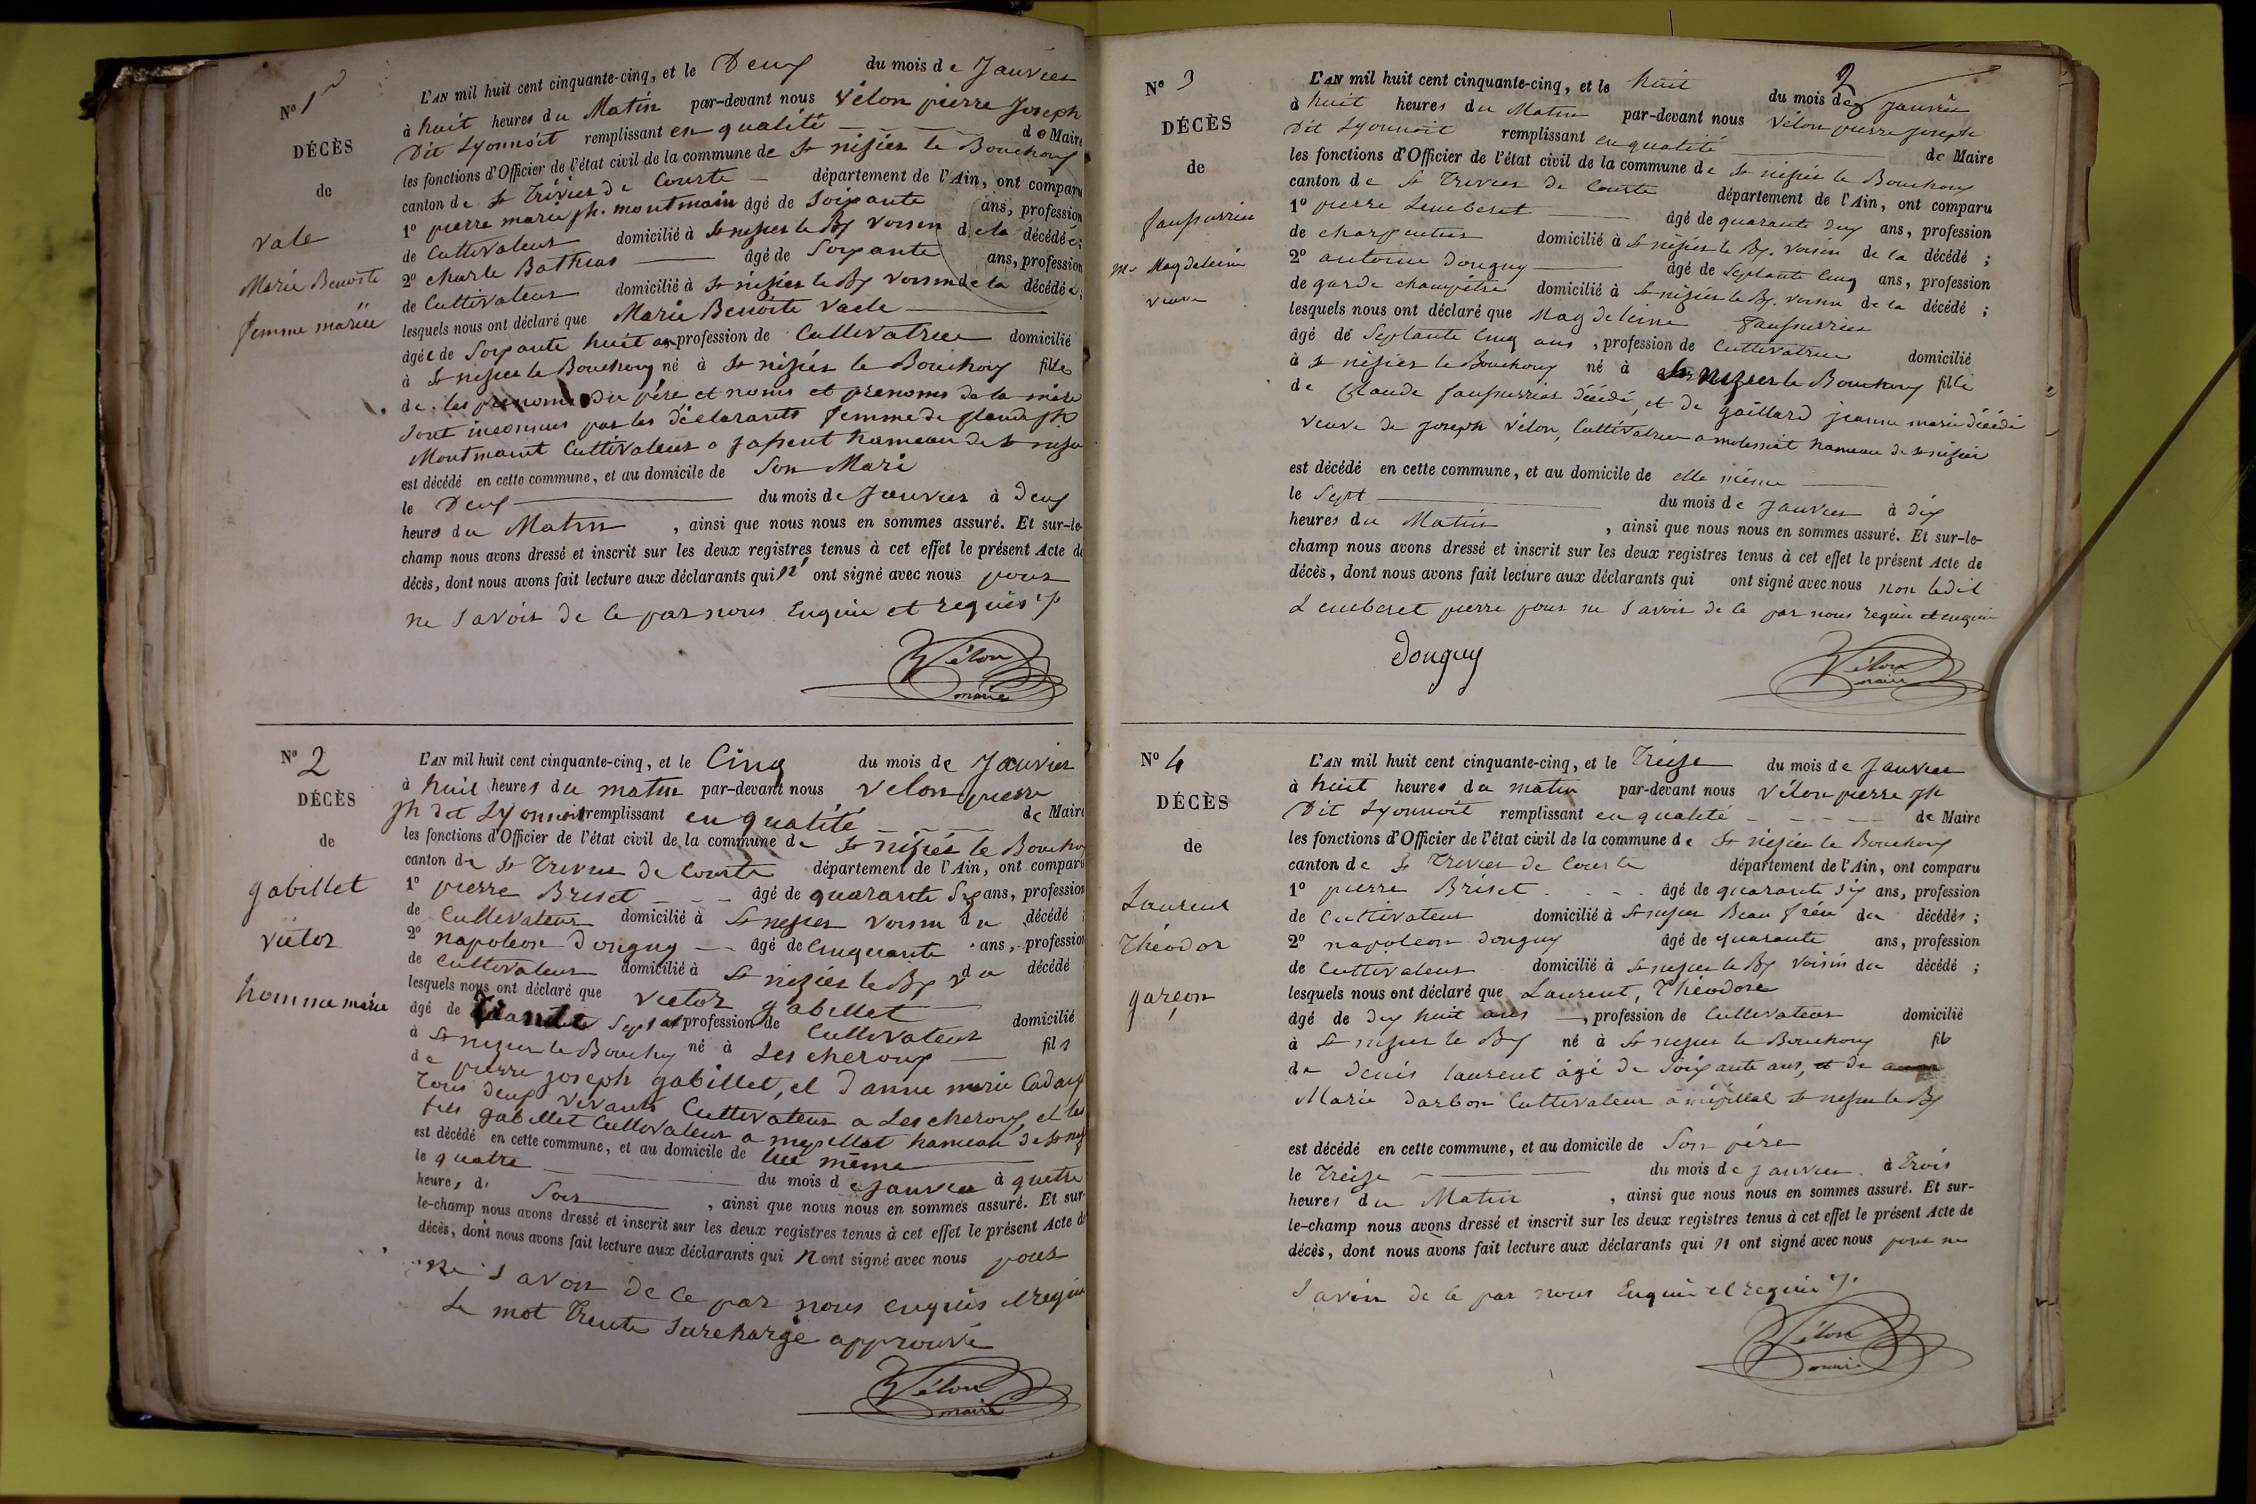 N° 1er
DÉCÈS
de
Vale
Marie Benoite
femme mariée
L'AN mil huit cent cinquante-cinq, et le Deux du mois de Janvier
à huit heures du Matin par-devant nous Vélon pierre Joseph
Dit Lyonnoit remplissant en qualité de Maire
les fonctions d'Officier de l'état civil de la commune de St nizier le Bouchoux
canton de St Trivier de Courte département de l'Ain, ont comparu
1° pierre marie jh. montmain âgé de Soixante ans, profession
de Cultivateur domicilié à St nizier le Bx voisin de la décédée;
2° charle Bathias âgé de Soixante ans, profession
de Cultivateur domicilié à St nizier le Bx voisin de la décédée;
lesquels nous ont déclaré que Marie Benoite Vaele
âgée de Soixante huit ans profession de Cultivatrice domicilié
à St nizier le Bouchoux né à St nizier le Bouchoux fille
de les prenoms du père et noms et prenoms de la mère
Sont inconnus par les déclarants femme de Claude jh
Montmaint Cultivateur a hameau de St nizier
est décédé en cette commune, et au domicile de Son Mari
le Deux du mois de Janvier à Deux
heures du Matin , ainsi que nous nous en sommes assuré. Et sur-le-
champ nous avons dressé et inscrit sur les deux registres tenus à cet effet le présent Acte de
décès, dont nous avons fait lecture aux déclarants qui n' ont signé avec nous pour
ne Savoir de Ce par nous Enquis et requis
Vélon
maire
N° 2
DÉCÈS
de
gabillet
victor
homme marié
L'AN mil huit cent cinquante-cinq, et le Cinq du mois de Janvier
à huit heures du matin par-devant nous Velon pierre
jh dit Lyonnoit remplissant en qualité de Maire
les fonctions d'Officier de l'état civil de la commune de St nizier le Bouchoux
canton de St Trivier de Courte département de l'Ain, ont comparu
1° pierre Briset âgé de quarante Six ans, profession
de Cultivateur domicilié à St nizier voisin du décédé
2° napoleon Donguy âgé de Cinquante ans, profession
de Cultivateur domicilié à St nizier le Bx vd du décédé
lesquels nous ont déclaré que victor gabillet
âgé de Trente Sept ans profession de Cultivateur domicilié
à St nizier le Bouchoux né à Lescheroux fils
de pierre joseph gabillet, et d'anne marie
Tous deux vivants Cultivateur a Lescheroux, et les
fils gabillet Cultivateur a hameau de St niz
est décédé en cette commune, et au domicile de lui même
le quatre du mois de Janvier à quatre
heures de Soir , ainsi que nous nous en sommes assuré. Et sur-
le-champ nous avons dressé et inscrit sur les deux registres tenus à cet effet le présent Acte de
décès, dont nous avons fait lecture aux déclarants qui n ont signé avec nous pour
ne Savoir de Ce par nous enquis et requis
Le mot Trente Surchargé approuvé
Vélon
maire
2
N° 3
DÉCÈS
de
faussurrier
Me Magdeleine
veuve
L'AN mil huit cent cinquante-cinq, et le huit du mois de Janvier
à huit heures du Matin par-devant nous Vélon pierre joseph
Dit Lyonnoit remplissant en qualité de Maire
les fonctions d'Officier de l'état civil de la commune de St nizier le Bouchoux
canton de St Trivier de Courte département de l'Ain, ont comparu
1° pierre Lemberet âgé de quarante deux ans, profession
de charpentier domicilié à St nizier le Bx. voisin de la décédé ;
2° antoine Donguy âgé de Septante Cinq ans, profession
de garde champêtre domicilié à St nizier le Bx. voisin de la décédé ;
lesquels nous ont déclaré que Magdeleine faussurrier
âgé de Septante Cinq ans , profession de Cultivatrice domicilié
à St nizier le Bouchoux né à St nizier le Bouchoux fille
de Claude faussurrier décédé, et de gaillard jeanne marie décédé
veuve de joseph Vélon, Cultivatrice a molessiat hameau de St nizier
est décédé en cette commune, et au domicile de elle même
le Sept du mois de Janvier à dix
heures du Matin , ainsi que nous nous en sommes assuré. Et sur-le-
champ nous avons dressé et inscrit sur les deux registres tenus à cet effet le présent Acte de
décès, dont nous avons fait lecture aux déclarants qui ont signé avec nous non ledit
Lemberet pierre pour ne Savoir de Ce par nous requis et enquis
Donguy
Vélon
maire
N° 4
DÉCÈS
de
Laurent
Théodor
garçon
L'AN mil huit cent cinquante-cinq, et le Treize du mois de Janvier
à huit heures du matin par-devant nous Vélon pierre jh
Dit Lyonnoit remplissant en qualité de Maire
les fonctions d'Officier de l'état civil de la commune de St nizier le Bouchoux
canton de St Trivier de Courte département de l'Ain, ont comparu
1° pierre Briset âgé de quarante six ans, profession
de Cultivateur domicilié à St nizier Beau frère du décédés ;
2° napoleon Donguy âgé de quarante ans, profession
de Cultivateur domicilié à St nizier le Bx voisin du décédé ;
lesquels nous ont déclaré que Laurent, Théodore
âgé de dix huit ans , profession de Cultivateur domicilié
à St nizier le Bx né à St nizier le Bouchoux fils
de Denis laurent âgé de Soixante ans, et de
Marie Darbon Cultivateur a St nizier le Bx
est décédé en cette commune, et au domicile de Son père
le Treize du mois de Janvier à Trois
heures du Matin , ainsi que nous nous en sommes assuré. Et sur-
le-champ nous avons dressé et inscrit sur les deux registres tenus à cet effet le présent Acte de
décès, dont nous avons fait lecture aux déclarants qui n ont signé avec nous pour ne
Savoir de Ce par nous Enquis et requis
Vélon
maire